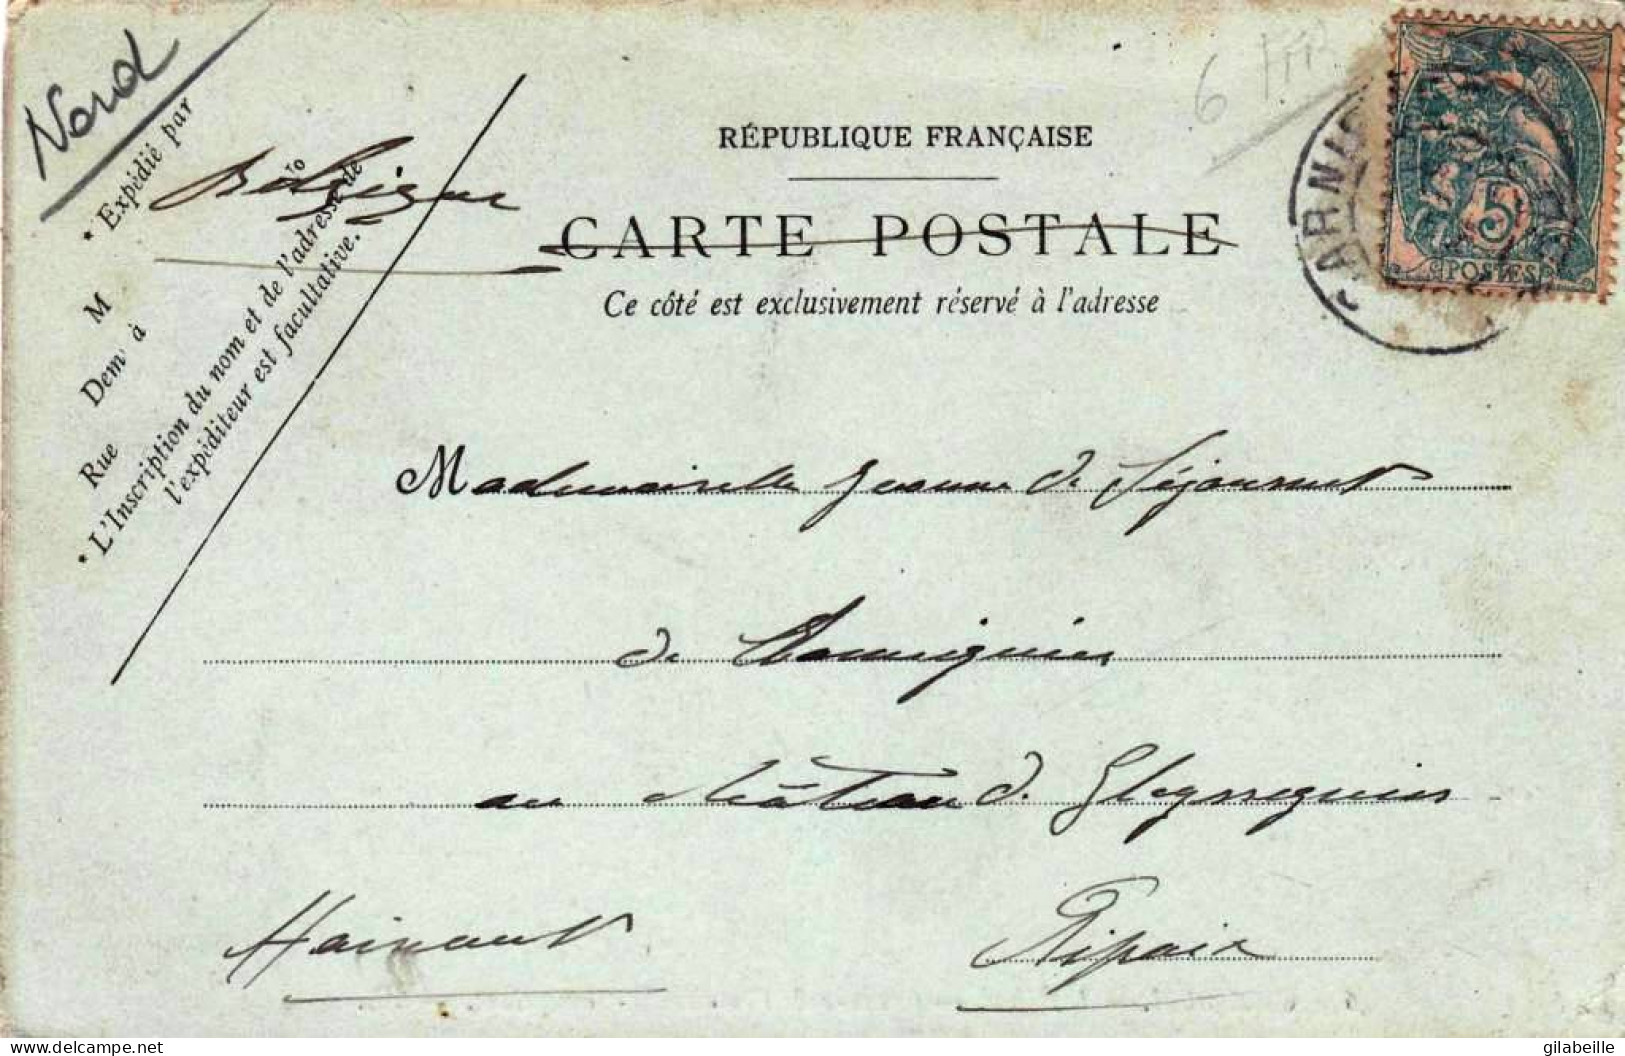 Nord
6
* Expédié par
Belgique
RÉPUBLIQUE FRANÇAISE
CARTE POSTALE
Ce côté est exclusivement réservé à l'adresse
CARNI
5
POSTES
M
Demt à
Rue No
* L'Inscription du nom et de l'adresse de
l'expéditeur est facultative.
Mademoiselle Jeanne de Séjournet
de
au château d.
Hainaut Ripain
delcampe.net
gilabeille